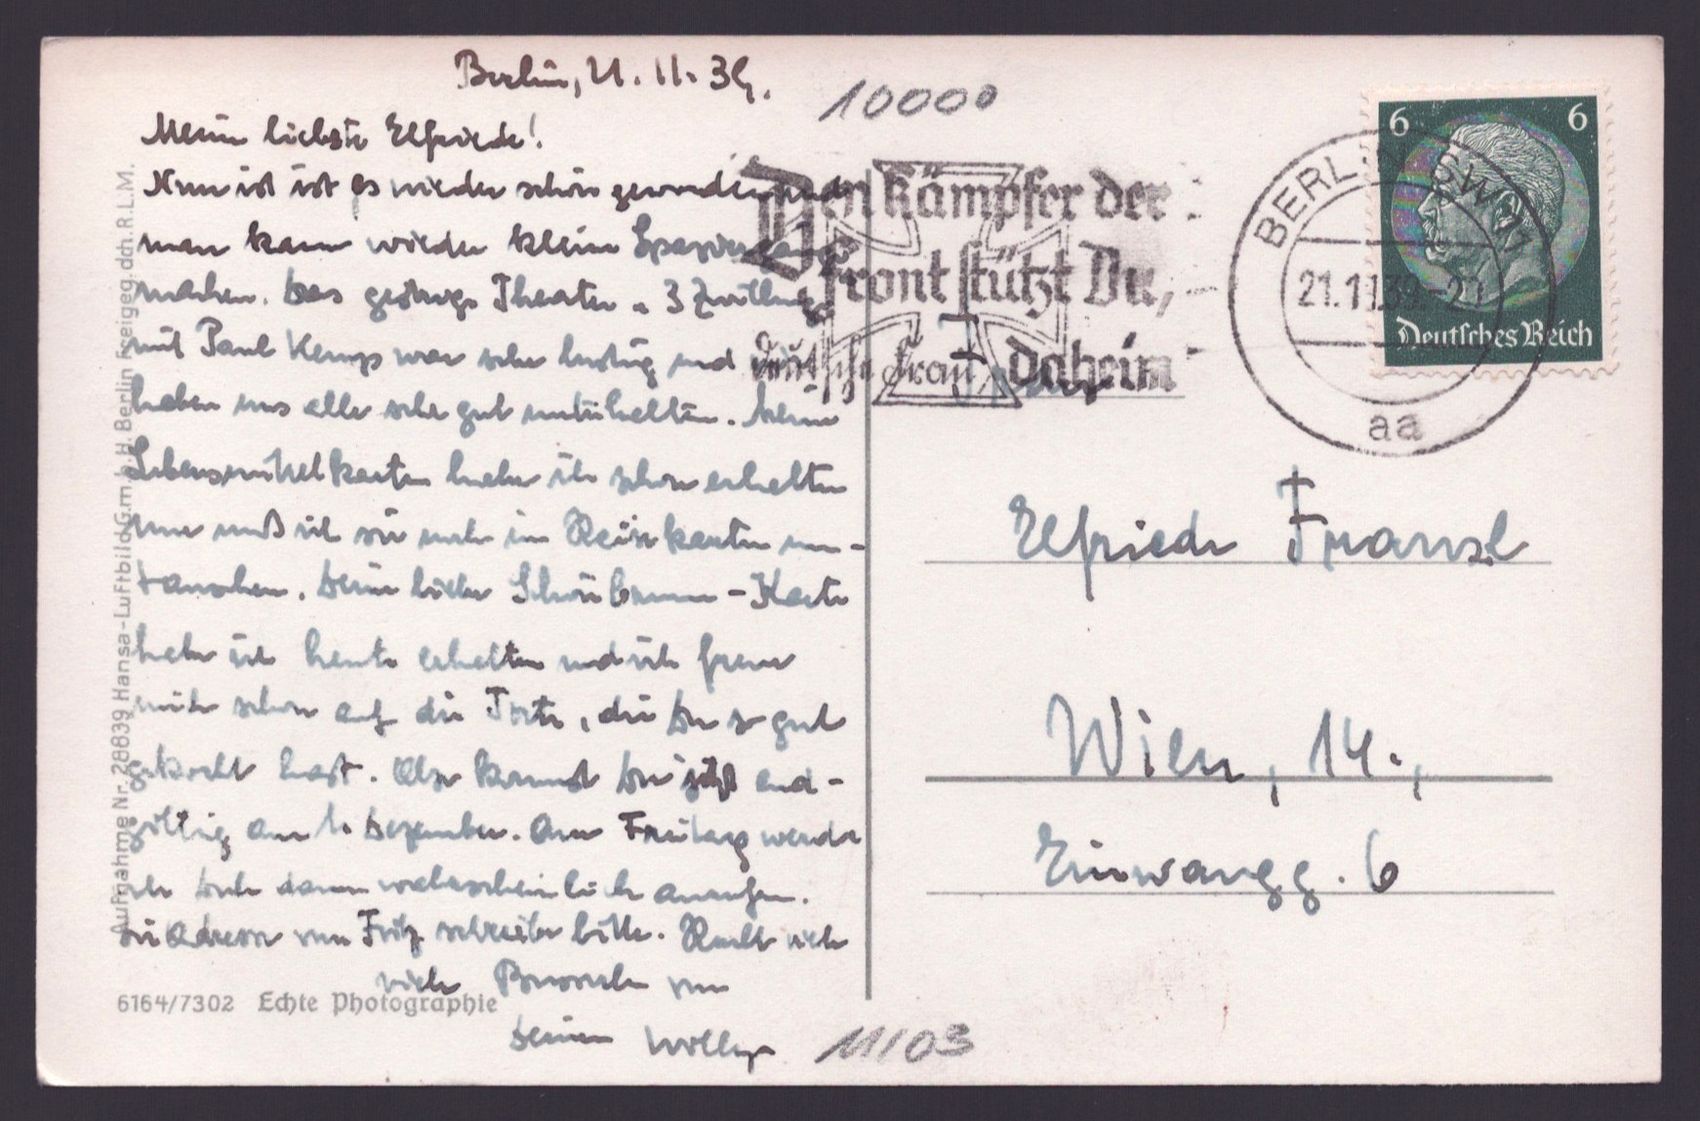 Berlin, 21.11.39.
10000
Mein liebste Elfriede!
Nun ist es wieder schön geworden und
man kann wieder kleine Spaziergang
machen. Das gestrige Theater „3 Zwillinge
mit Paul Kemp war sehr lustig und wir
haben uns alle sehr gut unterhalten. Meine
Lebensmittelkarten habe ich schon erhalten
nun muß ich sie noch in Reisekarten um-
tauschen. Deine liebe Schönbrunn-Karte
habe ich heute erhalten und ich freue
mich schon auf die Torte, die Du so gut
gekocht hast. Also kommst Du jetzt end-
gültig am 1. Dezember. Am Freitag werde
ich Dich dann wahrscheinlich anrufen.
Die Adresse von Fritz schreibe bitte. Recht viele
viele Busserln von
Deinem Willy
11103
Den Kämpfer der
Front stützt Du,
deutsche Frau, Daheim
BERLIN SW 11
21.11.39.-20
aa
6 6
Deutsches Reich
Frau
Elfriede Fransl
Wien, 14.,
Einwangg. 6
Aufnahme Nr. 28839 Hansa-Luftbild G.m.b.H. Berlin Freigeg. dch. R.L.M.
6164/7302 Echte Photographie